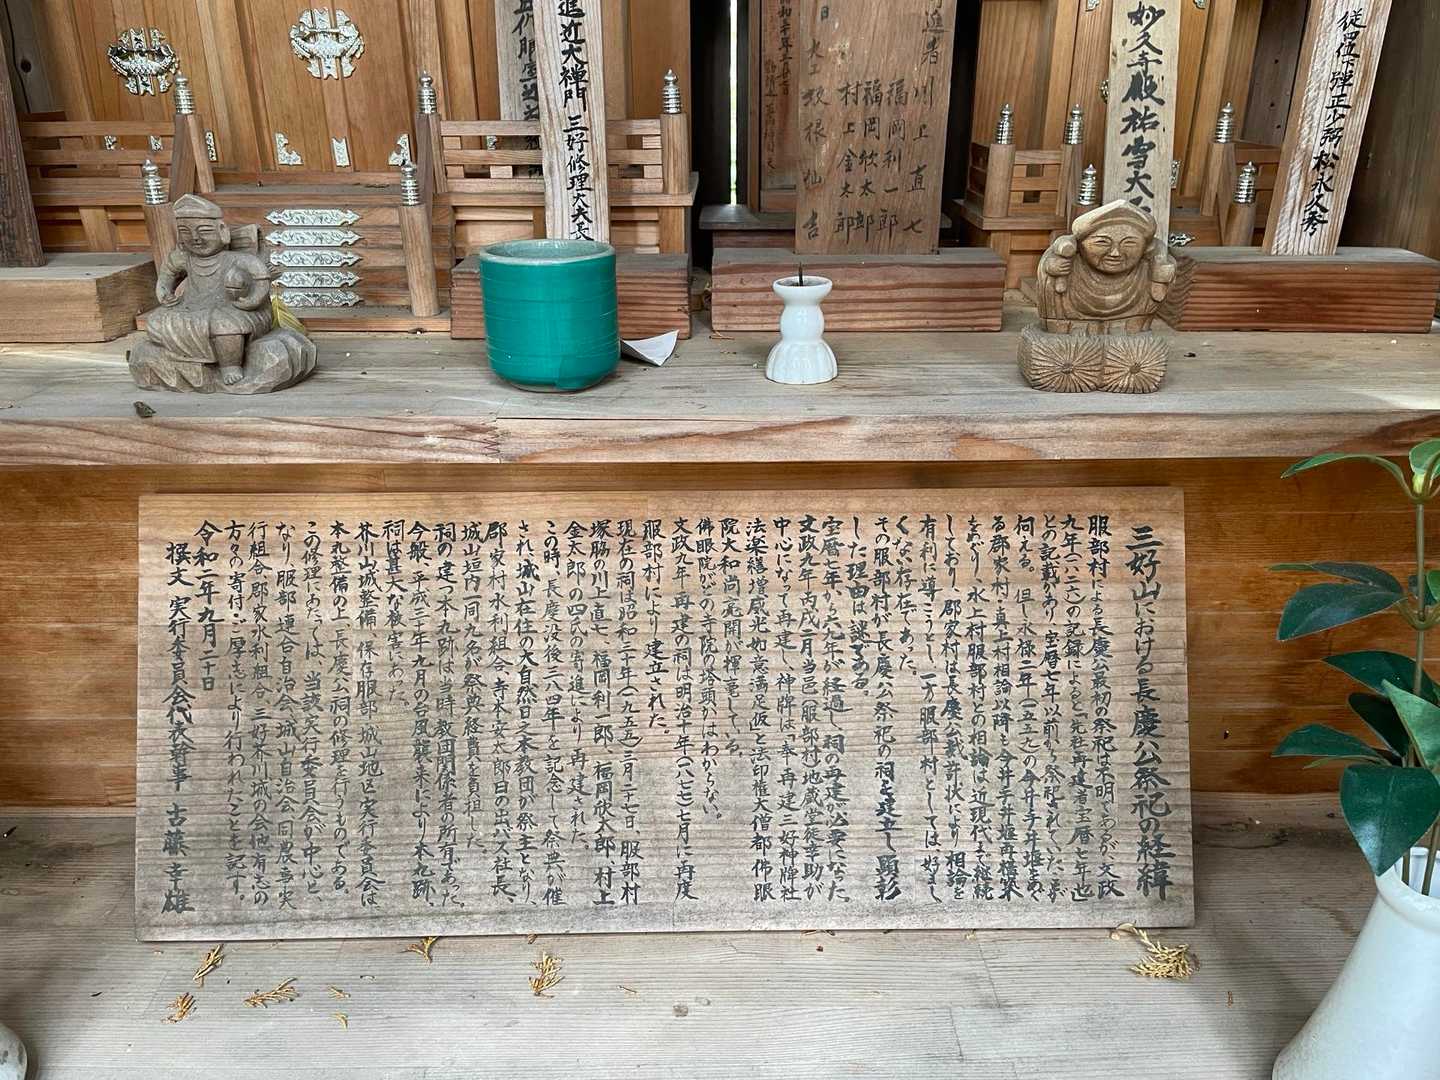 進近大禅門 三好修理大夫長
川上直七
福岡利一郎
福岡欣太郎
村上金太郎
妙久寺殿祐雪大
従四位下弾正少弼松永久秀
三好山における長慶公祭祀の経緯
服部村による長慶公最初の祭祀は不明であるが、文政
九年(一八二六)の記録によると「先社再建者宝暦七年也」
との記載があり、宝暦七年以前から祭祀されていた、事が
伺える。但し永禄二年(一五五九)の今井手井堰をめぐ
る郡家村・真上村相論以降も今井手井堰再構築
をめぐり、氷上村服部村との相論は近現代まで継続
しており、郡家村は長慶公裁許状により相論を
有利に導こうとし、一方服部村としては、好まし
くない存在であった。
その服部村が長慶公祭祀の祠を建立し顕彰
した理由は謎である。
宝暦七年から六九年が経過し祠の再建が必要になった。
文政九年丙戌二月当邑(服部村)地蔵堂徒幸助が
中心になって再建し、神牌は「奉再建三好神牌社
法楽繕増威光如意満足仮」と法印権大僧都佛眼
院大和尚亮開が揮毫している。
佛眼院がどの寺院の塔頭かはわからない。
文政九年再建の祠は明治十年(一八七七)七月に再度
服部村により建立された。
現在の祠は昭和三十年(一九五五)三月二十七日、服部村
塚脇の川上直七、福岡利一郎、福岡欣太郎、村上
金太郎の四氏の寄進により再建された。
この時、長慶没後三八四年を記念して祭典が催
され、城山在住の大自然日之本教団が祭主となり、
郡家村水利組合寺本安太郎日の出バス社長、
城山垣内一同九名が祭典経費を負担した。
祠の建つ本丸跡は当時教団関係者の所有であった。
今般、平成三十年九月の台風襲来により本丸跡、
祠は甚大な被害にあった。
芥川山城整備・保存服部・城山地区実行委員会は
本丸整備の上、長慶公祠の修理を行うものである。
この修理にあたっては、当該実行委員会が中心と、
なり、服部連合自治会、城山自治会、同農事実
行組合、郡家水利組合、三好芥川城の会他有志の
方々の寄付・ご厚志により行われたことを記す。
令和二年九月二十日
撰文 実行委員会代表幹事 古藤幸雄